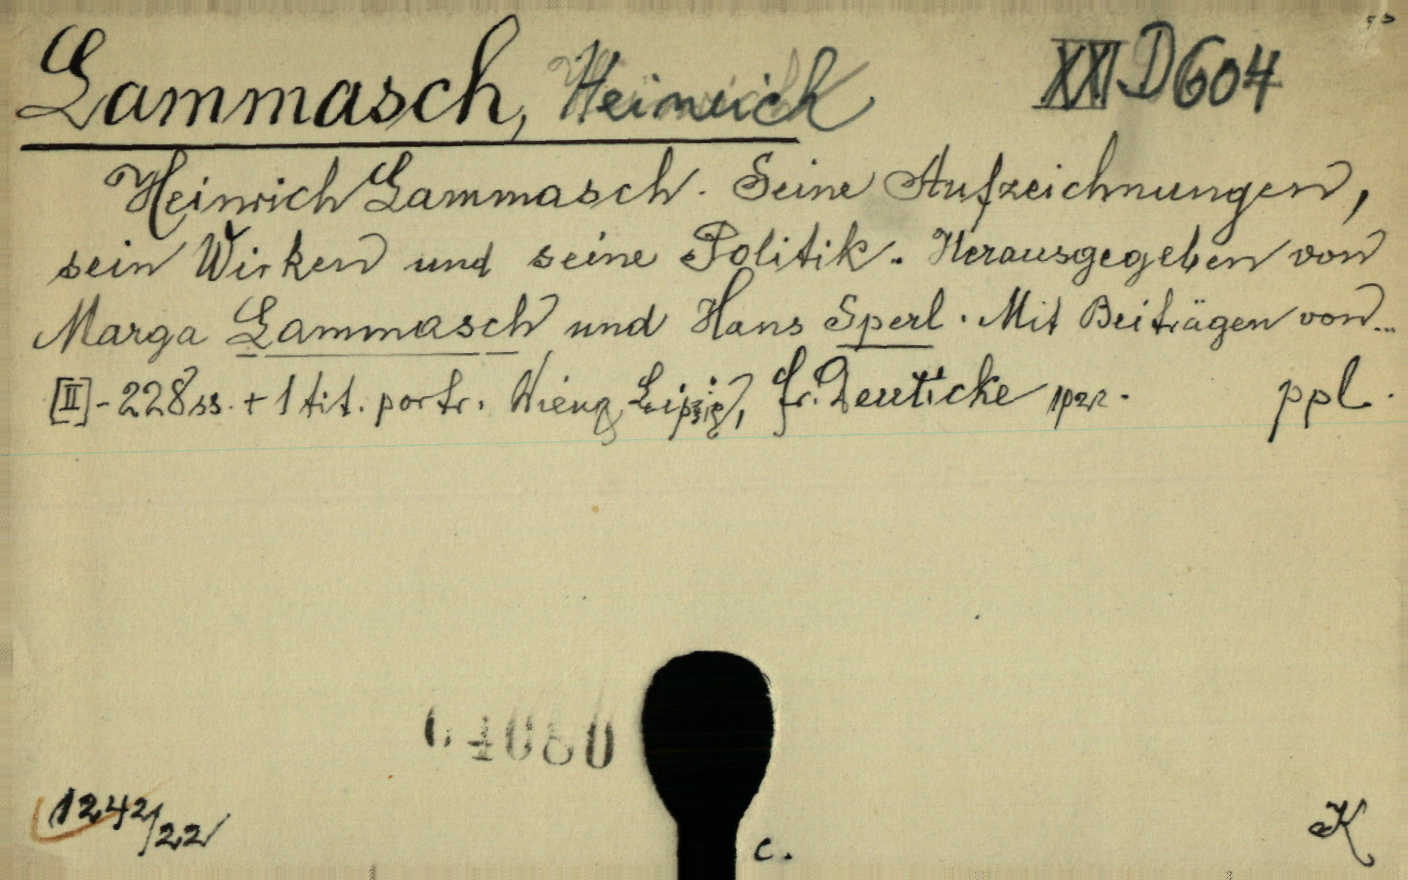 Lammasch, Heinrich XXI D 604
Heinrich Lammasch. Seine Aufzeichnungen,
sein Wirken und seine Politik. Herausgegeben von
Marga Lammasch und Hans Sperl. Mit Beiträgen von...
[II]-228 ss. + 1 tit. portr. Leipzig, Fr. Deuticke 1922. ppl.
64080
1242/22
c.
K